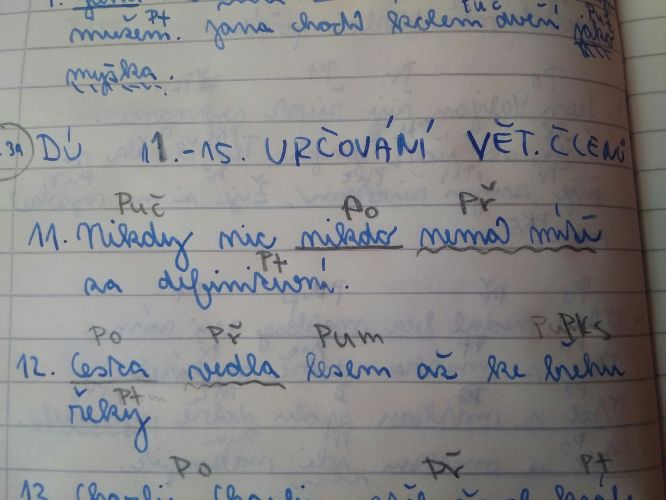 Pt Puč
mužem. Jana chodí kolem dveří
myška.
3A DÚ 11.-15. URČOVÁNÍ VĚT. ČLENŮ
Puč Po Př
11. Nikdy nic nikdo nemá míti
Pt
za definitivní.
Po Př Pum Pks
12. Cesta vedla lesem až ke břehu
Pt
řeky
Po Př Pt
13.